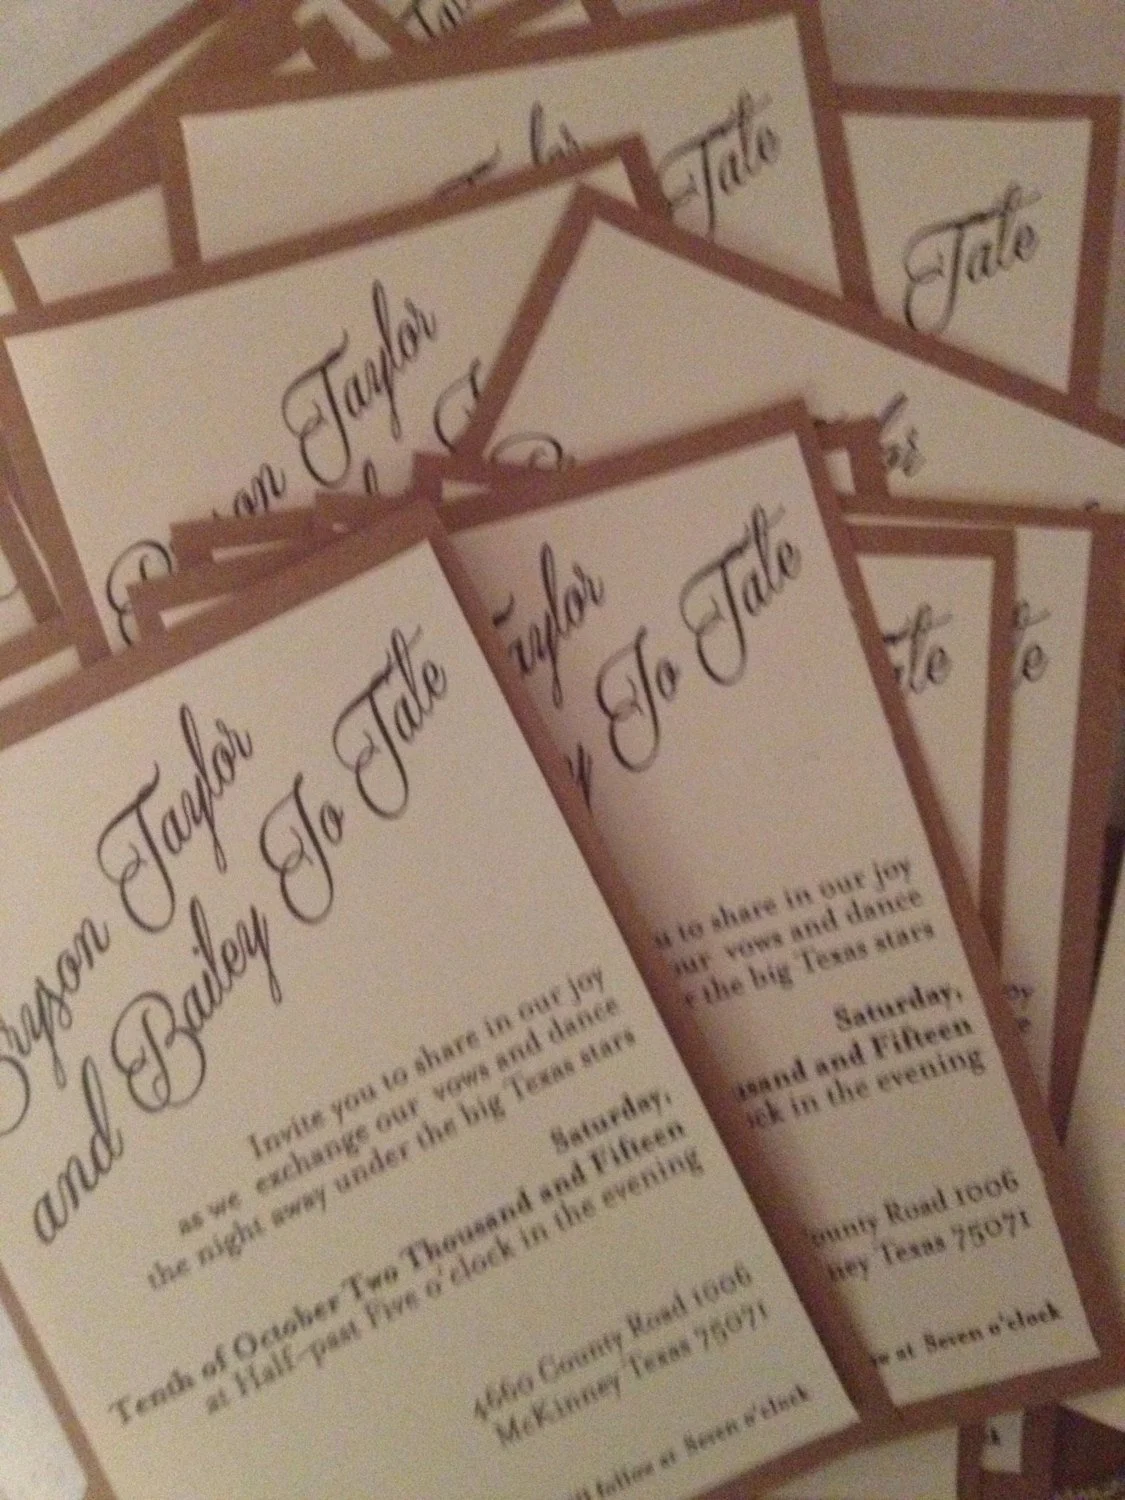 Bryson Taylor
and Bailey Jo Tate
Invite you to share in our joy
as we exchange our vows and dance
the night away under the big Texas stars
Saturday,
Tenth of October Two Thousand and Fifteen
at Half-past Five o'clock in the evening
4660 County Road 1006
McKinney Texas 75071
follow at Seven o'clock
Taylor
Jo Tate
to share in our joy
our vows and dance
the big Texas stars
Saturday,
and Fifteen
in the evening
County Road 1006
Texas 75071
at Seven o'clock
Bryson Taylor
Tate
Tate